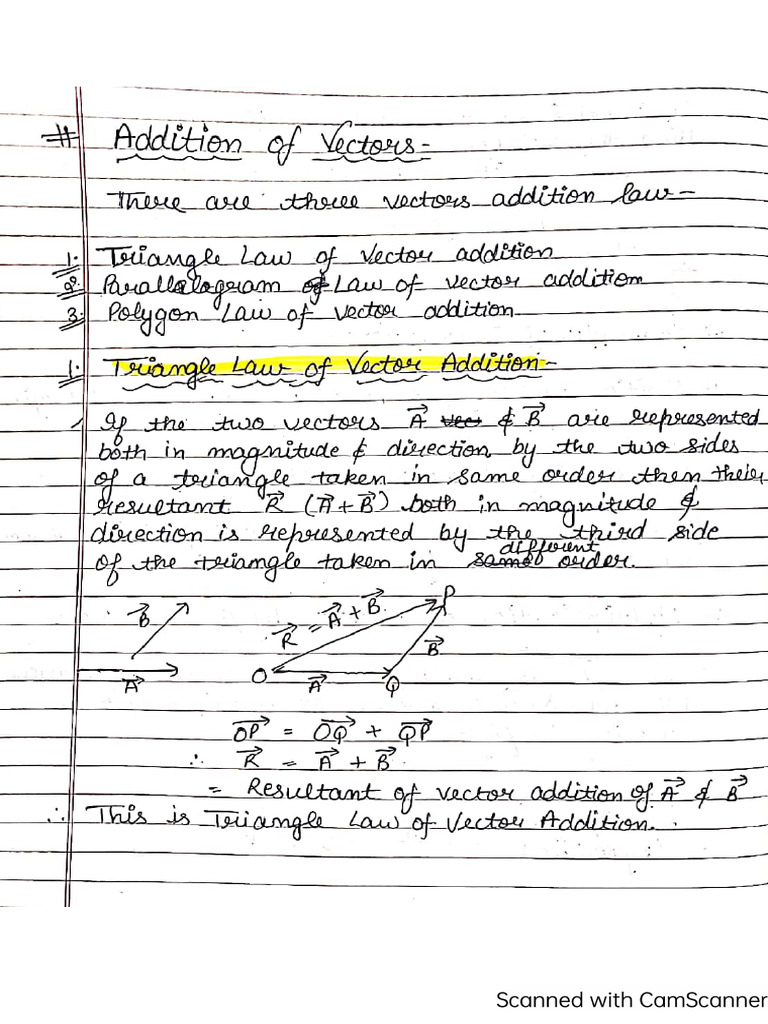 # Addition of Vectors-
There are three vectors addition law-
1. Triangle Law of Vector addition
2. Parallalogram of Law of vector addition
3. Polygon Law of vector addition
1. Triangle Law of Vector Addition-
If the two vectors A⃗ vec & B⃗ are represented
both in magnitude & direction by the two sides
of a triangle taken in same order then their
resultant R⃗ (A⃗+B⃗) both in magnitude &
direction is represented by the third side
different
of the triangle taken in same order.
B⃗
A⃗
R⃗ = A⃗ + B⃗
P
B⃗
O
A⃗
Q
OP⃗ = OQ⃗ + QP⃗
∴ R⃗ = A⃗ + B⃗
= Resultant of vector addition of A⃗ & B⃗
∴ This is Triangle Law of Vector Addition.
Scanned with CamScanner